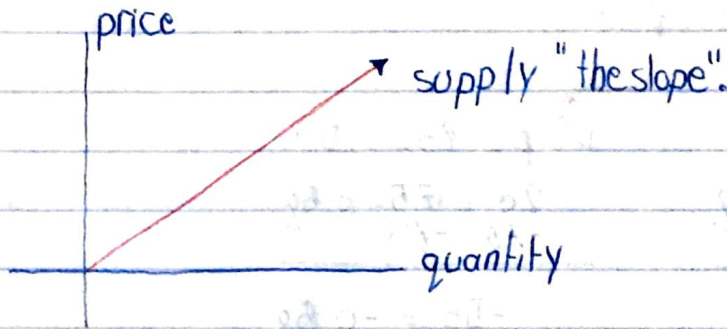 price
supply "the slope".
quantity